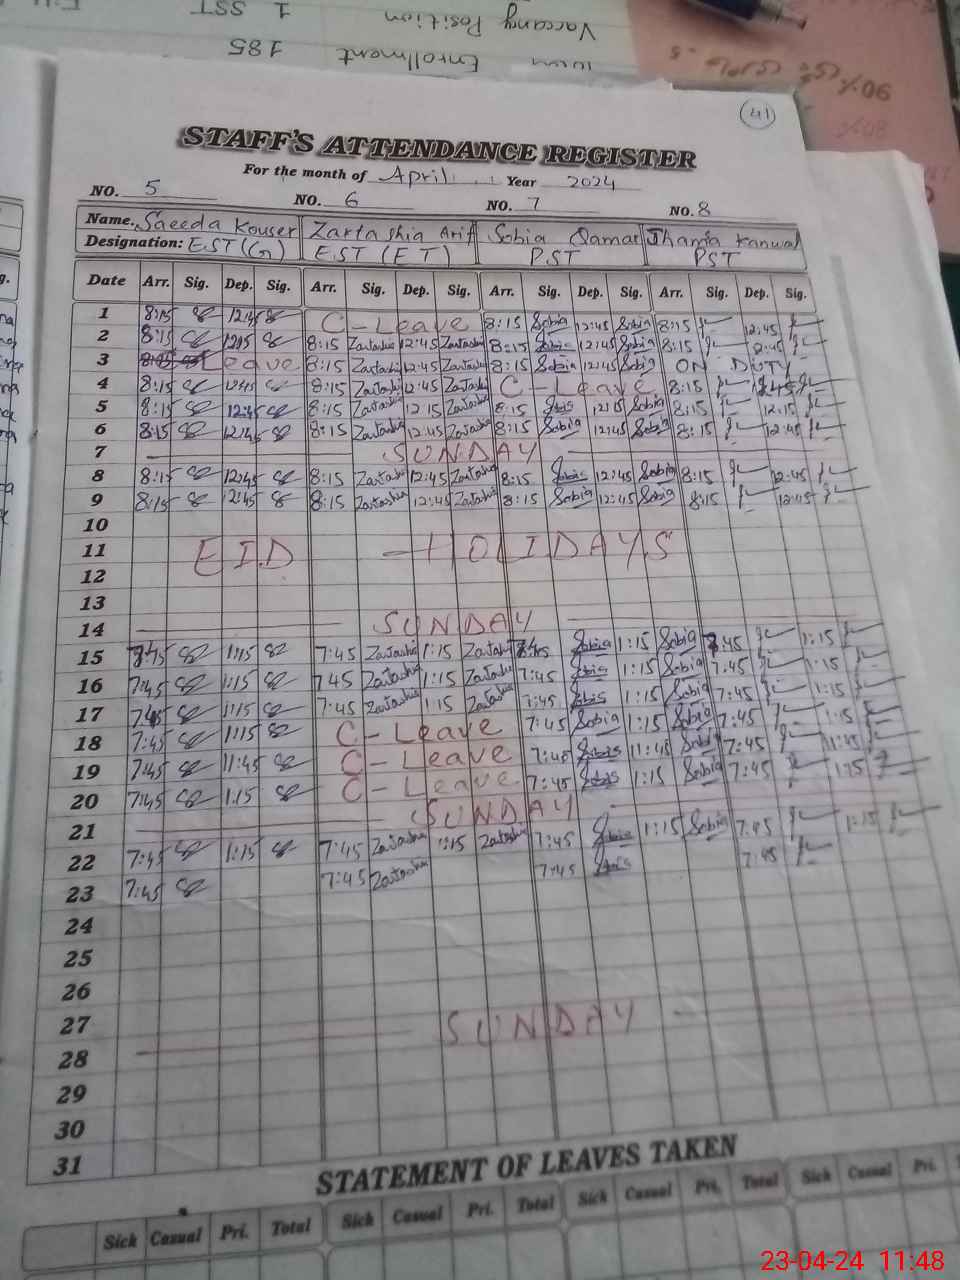 1 SST
Vaccancy Position
185
Enrollment
90%
80%
41
STAFF'S ATTENDANCE REGISTER
For the month of April Year 2024
NO. 5 NO. 6 NO. 7 NO. 8
Name. Saeeda Kouser Zartashia Arif Sobia Qamar Kanwal
Designation: EST (G) EST (ET) PST PST
Date Arr. Sig. Dep. Sig. Arr. Sig. Dep. Sig. Arr. Sig. Dep. Sig. Arr. Sig. Dep. Sig.
1 8:15 12:45 C-Leave 8:15 Sobia 12:45 Sobia 8:15 12:45
2 8:15 8:15 Zartashia 12:45 Zartashia 8:15 Sobia 12:45 Sobia 8:15
3 Leave 8:15 Zartashia 12:45 Zartashia 8:15 Sobia 12:45 Sobia ON DUTY
4 8:15 12:45 8:15 Zartashia 12:45 Zartashia C-Leave 8:15
5 8:15 12:45 8:15 Zartashia 12 15 Zartashia 8:15 Sobia Sobia 8:15 12:15
6 8:15 12:45 8:15 Zartashia 12:45 Zartashia 8:15 Sobia 12:45 Sobia 8:15 12:45
7 SUNDAY
8 8:15 12:45 8:15 Zartashia 12:45 Zartashia 8:15 Sobia 12:45 Sobia 8:15 12:45
9 8:15 12:45 8:15 Zartashia 12:45 Zartashia 8:15 Sobia 12:45 Sobia 8:15 12:45
10
11 EID HOLIDAYS
12
13
14 SUNDAY
15 1:15 7:45 Zartashia 1:15 Zartashia Sobia 1:15 Sobia 7:45 1:15
16 7:45 1:15 7 45 Zartashia 1:15 Zartashia 7:45 Sobia 1:15 Sobia 7:45 1:15
17 7:45 1:15 7:45 Zartashia 1:15 Zartashia 7:45 Sobia 1:15 Sobia 7:45 1:15
18 7:45 1:15 C-Leave 7:45 Sobia 1:15 Sobia 7:45 1:15
19 7:45 11:45 C-Leave 7:45 Sobia 11:45 Sobia 7:45 11:45
20 7:45 1:15 C-Leave 7:45 Sobia 1:15 Sobia 7:45 1:15
21 SUNDAY
22 7:45 1:15 7:45 Zartashia 1:15 Zartashia 7:45 Sobia 1:15 Sobia 7:45 1:15
23 7:45 7:45 Zartashia 7:45 7:45
24
25
26
27
28 SUNDAY
29
30
31
STATEMENT OF LEAVES TAKEN
Sick Casual Pri. Total Sick Casual Pri. Total Sick Casual Pri. Total Sick Casual Pri.
23-04-24 11:48